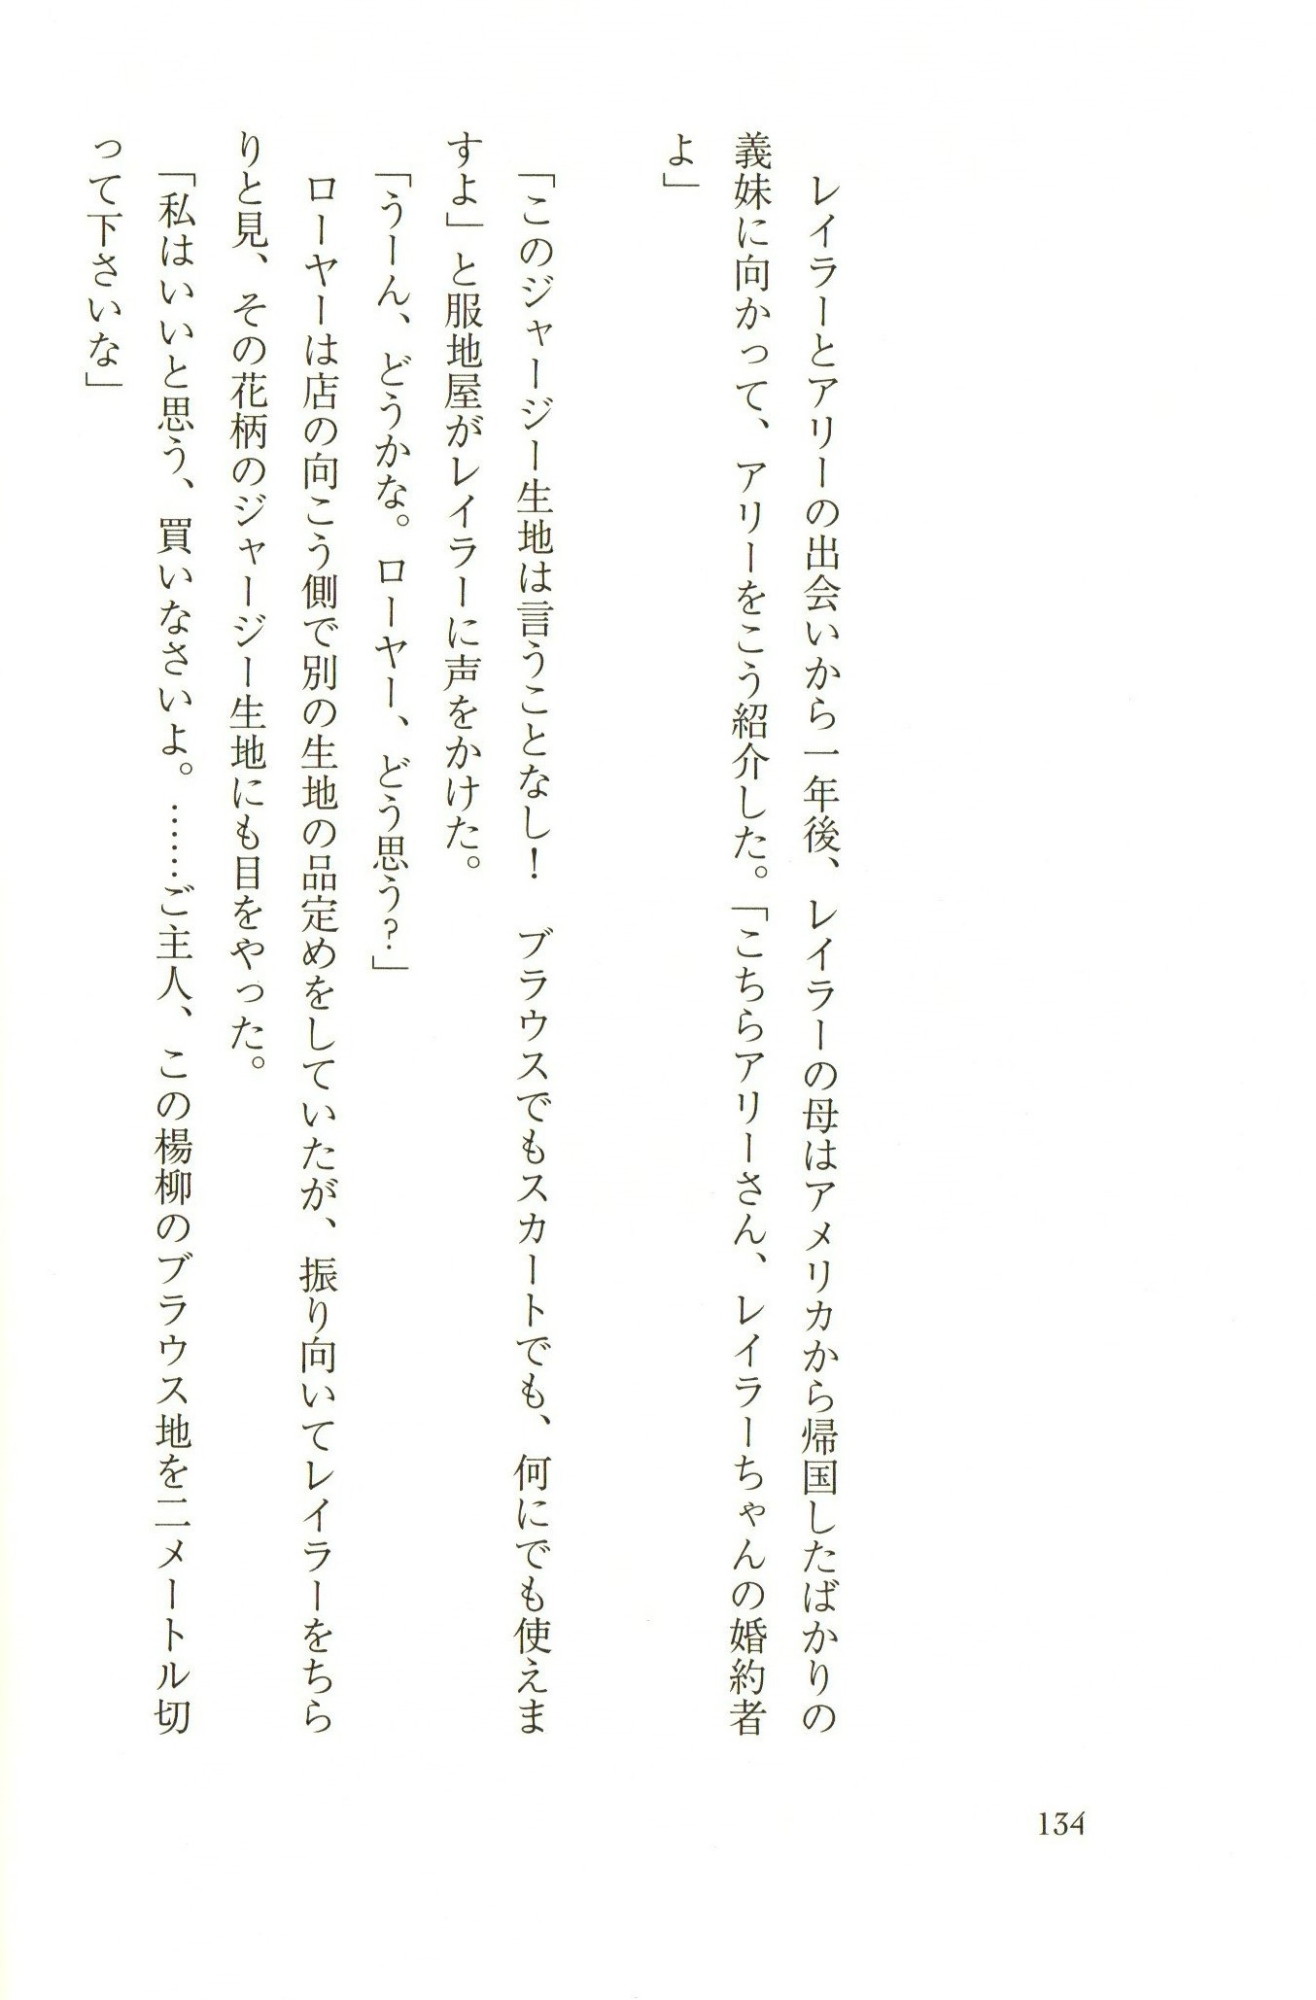 レイラーとアリーの出会いから一年後、レイラーの母はアメリカから帰国したばかりの
義妹に向かって、アリーをこう紹介した。「こちらアリーさん、レイラーちゃんの婚約者
よ」
「このジャージー生地は言うことなし！　ブラウスでもスカートでも、何にでも使えま
すよ」と服地屋がレイラーに声をかけた。
「うーん、どうかな。ローヤー、どう思う？」
ローヤーは店の向こう側で別の生地の品定めをしていたが、振り向いてレイラーをちら
りと見、その花柄のジャージー生地にも目をやった。
「私はいいと思う、買いなさいよ。……ご主人、この楊柳のブラウス地を二メートル切
って下さいな」
134